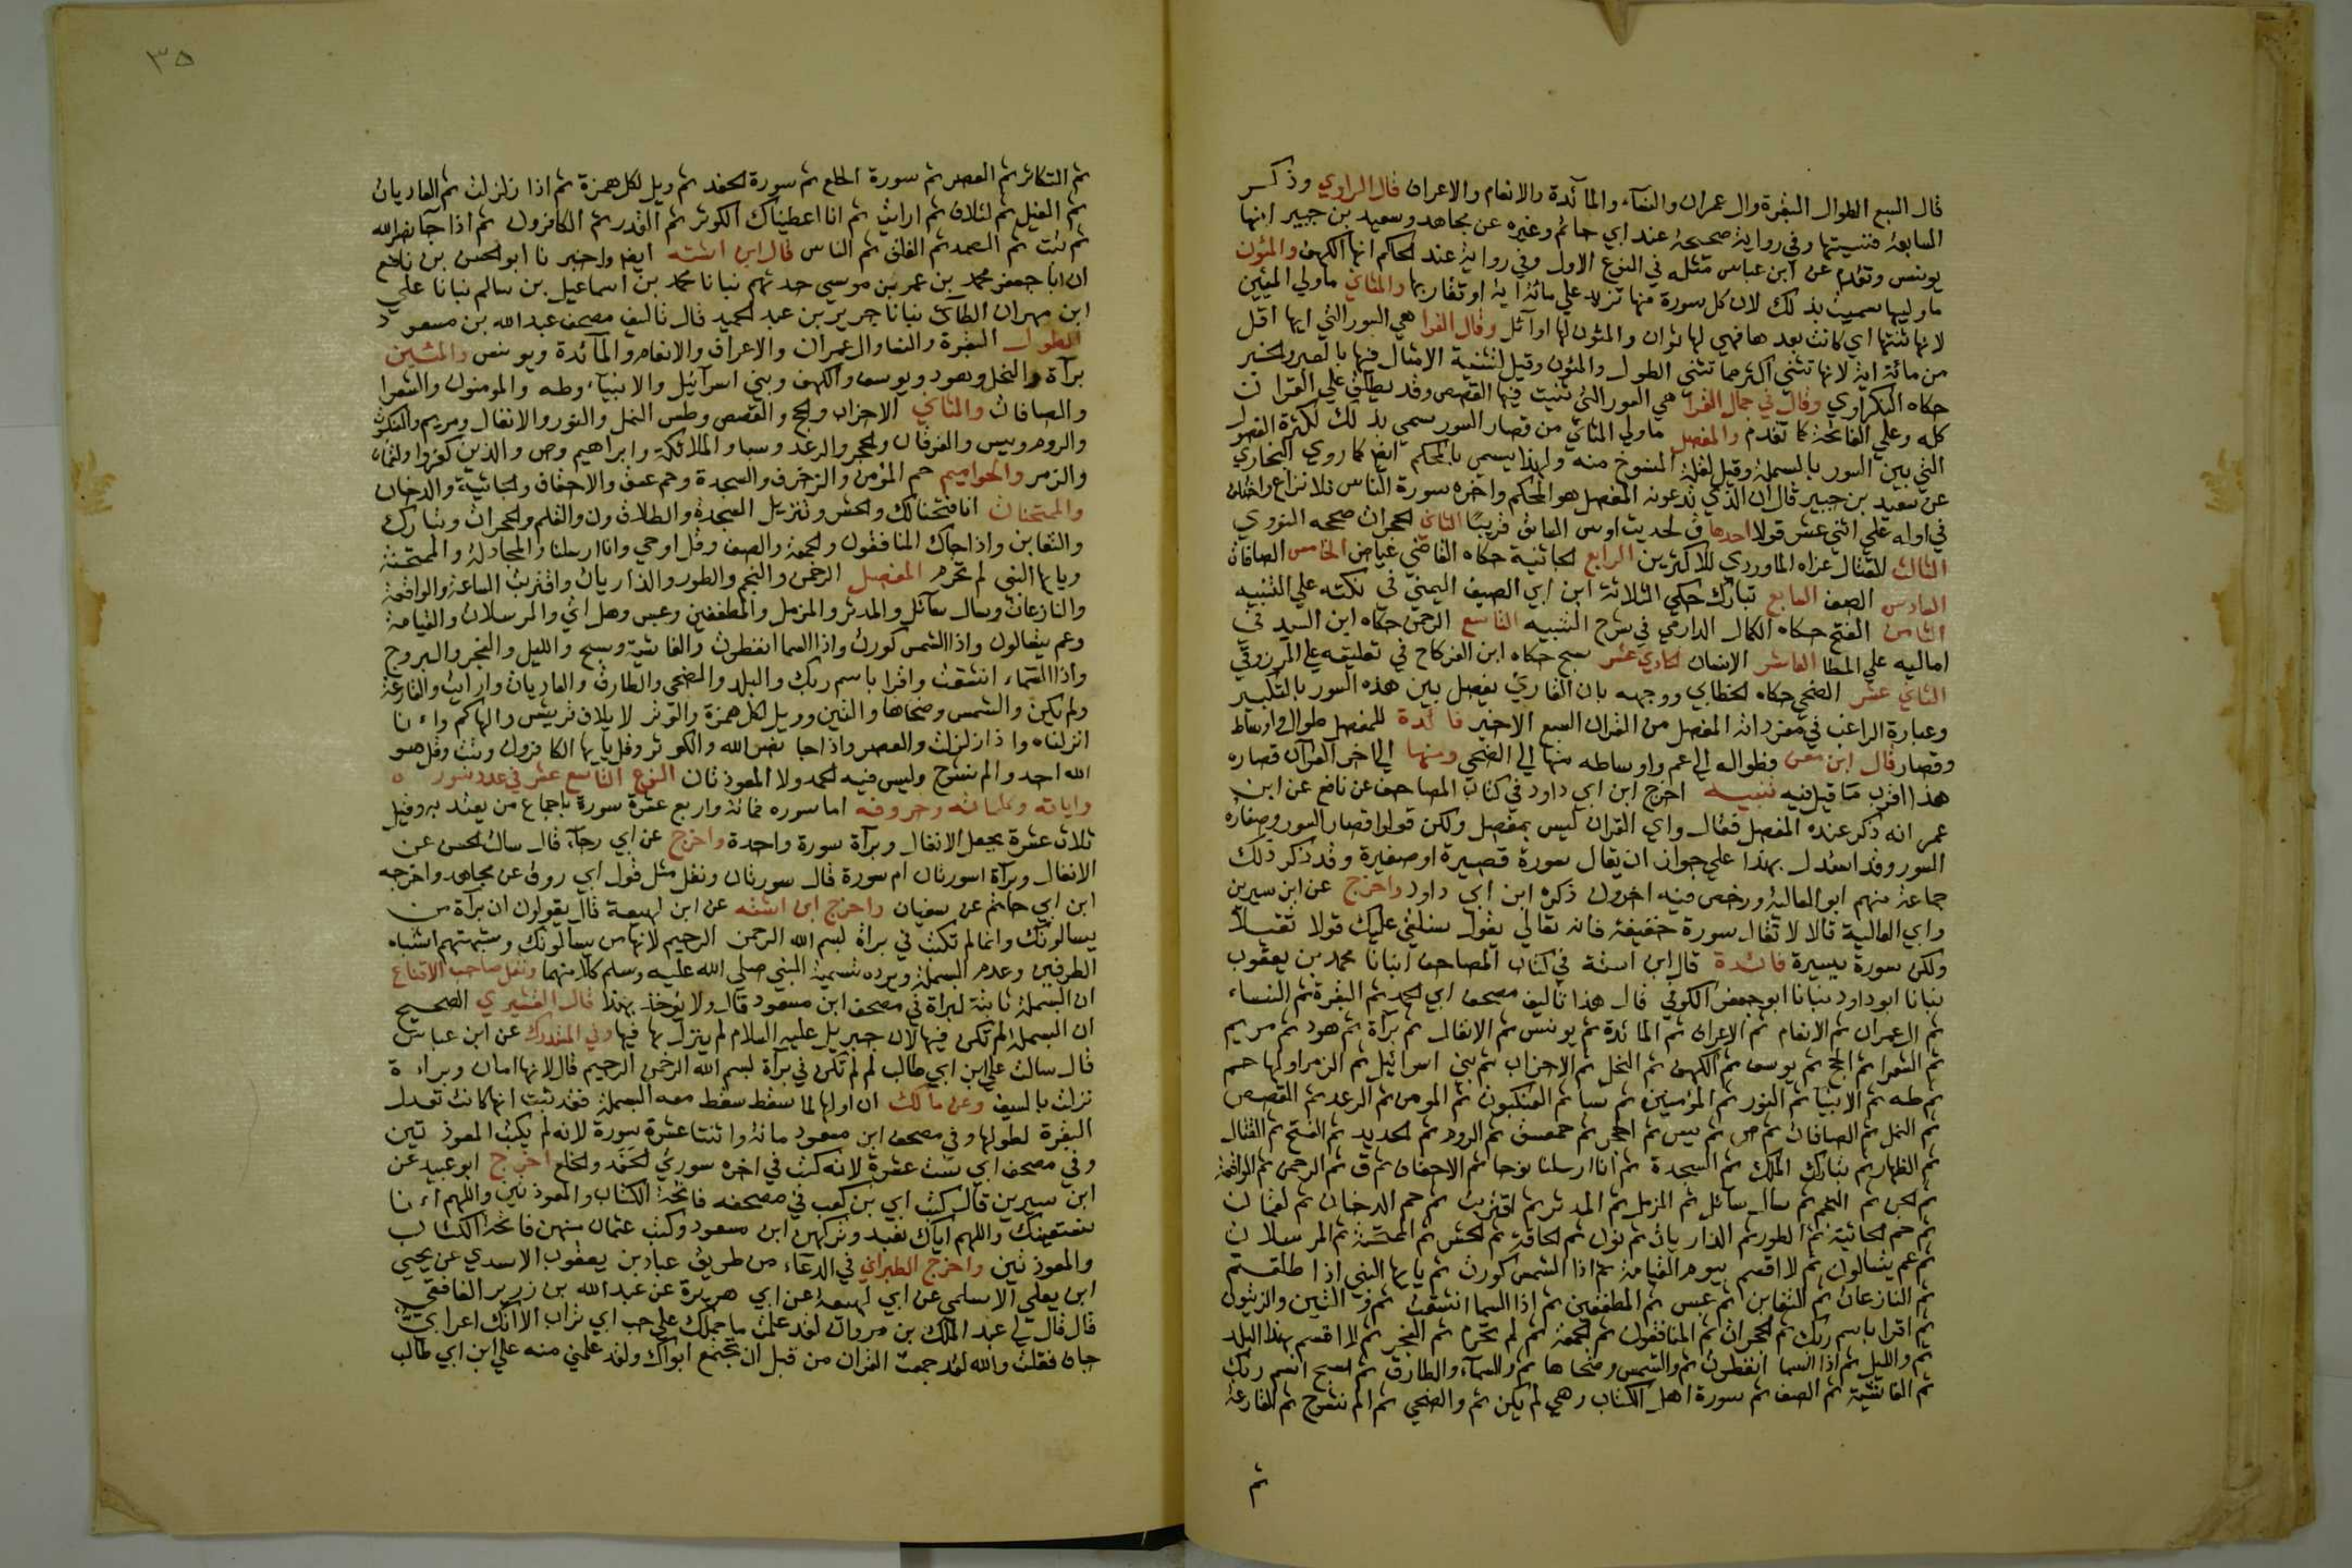 قال السبع الطوال البقرة وال عمران والنساء والمائدة والانعام والاعراف قال الراوي وذكر
السابعة فنسيتها وفي رواية صحيحة عند ابي حاتم وغيره عن مجاهد وسعيد بن جبير انها
يونس وتقدم عن ابن عباس مثله في النوع الاول وفي رواية عند الحاكم انها الكهف والمئون
ما وليها سميت بذلك لان كل سورة منها تزيد علي مائة اية او تقاربها والمثاني ما ولي المئين
لانها ثنتها اي كانت بعدها فهي لها ثوان والمئون لها اوائل وقال الفرا هي السور التي ايها اقل
من مائة اية لانها تثني اكثر مما تثني الطول والمئون وقيل لتثنية الامثال فيها بالعبر والخبر
حكاه النكزاوي وقال في جمال القرا هي السور التي ثنيت فيها القصص وقد يطلق علي القران
كله وعلي الفاتحة كما تقدم والمفصل ما ولي المثاني من قصار السور سمي بذلك لكثرة الفصول
التي بين السور بالبسملة وقيل لقلة المنسوخ منه ولهذا يسمي بالمحكم ايضا كما روي البخاري
عن سعيد بن جبير قال ان الذي تدعونه المفصل هو المحكم واخره سورة الناس بلا نزاع واختلف
في اوله علي اثني عشر قولا احدها ق لحديث اوس السابق قريبا الثاني الحجرات صححه النووي
الثالث القتال عزاه الماوردي للاكثرين الرابع الجاثية حكاه القاضي عياض الخامس الصافات
السادس الصف السابع تبارك حكي الثلاثة ابن ابي الصيف اليمني في نكته علي التنبيه
الثامن الفتح حكاه الكمال الدارمي في شرح التنبيه التاسع الرحمن حكاه ابن السيد في
اماليه علي الموطا العاشر الانسان الحادي عشر سبح حكاه ابن الفركاح في تعليقه عن المرزوقي
الثاني عشر الضحي حكاه الخطابي ووجهه بان القاري يفصل بين هذه السور بالتكبير
وعبارة الراغب في مفرداته المفصل من القران السبع الاخير فائدة للمفصل طوال واوساط
وقصار قال ابن معن فطواله الي عم واوساطه منها الي الضحي ومنها الي اخر القرآن قصاره
هذا اقرب ما قيل فيه تنبيه اخرج ابن ابي داود في كتاب المصاحف عن نافع عن ابن
عمر انه ذكر عنده المفصل فقال واي القران ليس بمفصل ولكن قولوا قصار السور وصغاره
السور وقد استدل بهذا علي جواز ان يقال سورة قصيرة او صغيرة وقد ذكر ذلك
جماعة منهم ابو العالية ورخص فيه اخرون ذكره ابن ابي داود واخرج عن ابن سيرين
وابي العالية قالا لا تقال سورة خفيفة فانه تعالي يقول سنلقي عليك قولا ثقيلا
ولكن سورة يسيرة فائدة قال ابن اشتة في كتاب المصاحف انبانا محمد بن يعقوب
نبانا ابو داود نبانا ابو جعفر الكوفي قال هذا تاليف مصحف ابي الحمد ثم البقرة ثم النساء
ثم ال عمران ثم الانعام ثم الاعراف ثم المائدة ثم يونس ثم الانفال ثم برآة ثم هود ثم مريم
ثم الشعرا ثم الحج ثم يوسف ثم الكهف ثم النحل ثم الاحزاب ثم بني اسرائيل ثم الزمر اولها حم
ثم طه ثم الانبيا ثم النور ثم المؤمنين ثم سبا ثم العنكبوت ثم المومن ثم الرعد ثم القصص
ثم النمل ثم الصافات ثم ص ثم يس ثم الحجر ثم حمعسق ثم الروم ثم الحديد ثم الفتح ثم القتال
ثم الظهار ثم تبارك الملك ثم السجدة ثم انا ارسلنا نوحا ثم الاحقاف ثم ق ثم الرحمن ثم الواقعة
ثم الجن ثم النجم ثم سال سائل ثم المزمل ثم المدثر ثم اقتربت ثم حم الدخان ثم لقمان
ثم حم الجاثية ثم الطور ثم الذاريات ثم نون ثم الحاقة ثم الحشر ثم الممتحنة ثم المرسلات
ثم عم يتسالون ثم لا اقسم بيوم القيامة ثم اذا الشمس كورت ثم يايها النبي اذا طلقتم
ثم النازعات ثم التغابن ثم عبس ثم المطففين ثم اذا السما انشقت ثم و التين والزيتون
ثم اقرا باسم ربك ثم الحجرات ثم المنافقون ثم الجمعة ثم لم تحرم ثم الفجر ثم لا اقسم بهذا البلد
ثم والليل ثم اذا السما انفطرت ثم والشمس وضحاها ثم والسماء والطارق ثم سبح اسم ربك
ثم الغاشية ثم الصف ثم سورة اهل الكتاب وهي لم يكن ثم والضحي ثم الم نشرح ثم القارعة
ثم
٣٥
ثم التكاثر ثم العصر ثم سورة الخلع ثم سورة الحفد ثم ويل لكل همزة ثم اذا زلزلت ثم العاديات
ثم الفيل ثم لئلاف ثم ارايت ثم انا اعطيناك الكوثر ثم القدر ثم الكافرون ثم اذا جآ نصر الله
ثم تبت ثم الصمد ثم الفلق ثم الناس قال ابن اشته ايضا واخبرنا ابو الحسن بن نافع
ان ابا جعفر محمد بن عمر بن موسي حدثهم نبانا محمد بن اسماعيل بن سالم نبانا علي
ابن مهران الطائي نبانا جرير بن عبد الحميد قال تاليف مصحف عبد الله بن مسعود
الطول البقرة والنسا وال عمران والاعراف والانعام والمائدة ويونس والمئين
برآة والنحل وهود ويوسف والكهف وبني اسرائيل والانبياء وطه والمومنون والشعرا
والصافات والمثاني الاحزاب والحج والقصص وطس النمل والنور والانفال ومريم والعنكبوت
والروم ويس والفرقان والحجر والرعد وسبا والملائكة وابراهيم وص والذين كفروا ولقمان
والزمر والحواميم حم المؤمن والزخرف والسجدة وحم عسق والاحقاف والجاثية والدخان
والممتحنات انا فتحنا لك والحشر وتنزيل السجدة والطلاق ون والقلم والحجرات وتبارك
والتغابن واذا جاك المنافقون والجمعة والصف وقل اوحي وانا ارسلنا والمجادلة والممتحنة
ويايها النبي لم تحرم المفصل الرحمن والنجم والطور والذاريات واقتربت الساعة والواقعة
والنازعات وسال سائل والمدثر والمزمل والمطففين وعبس وهل اتي والمرسلات والقيامة
وعم يتسالون واذا الشمس كورت واذا السما انفطرت والغاشية وسبح والليل والفجر والبروج
واذا السماء انشقت واقرا باسم ربك والبلد والضحي والطارق والعاديات وارايت والقارعة
ولم يكن والشمس وضحاها والتين وويل لكل همزة والم تر لايلاف قريش والهاكم وانا
انزلناه واذا زلزلت والعصر واذا جا نصر الله والكوثر وقل يايها الكافرون وتبت وقل هو
الله احد والم نشرح وليس فيه الحمد ولا المعوذتان النوع التاسع عشر في عدد سوره
واياته وكلماته وحروفه اما سوره فمائة واربع عشرة سورة باجماع من يعتد به وقيل
ثلاث عشرة بجعل الانفال وبرآة سورة واحدة واخرج عن ابي رجآء قال سالت الحسن عن
الانفال وبرآة اسورتان ام سورة قال سورتان ونقل مثل قول ابي روق عن مجاهد واخرجه
ابن ابي حاتم عن سفيان واخرج ابن اشته عن ابن لهيعة قال يقولون ان برآة من
يسالونك وانما لم تكتب في برآة بسم الله الرحمن الرحيم لانها من يسالونك وشبهتهم اشتباه
الطرفين وعدم البسملة ويرده تسمية النبي صلي الله عليه وسلم كلا منهما ونقل صاحب الاقناع
ان البسملة ثابتة لبرآة في مصحف ابن مسعود قال ولا يوخذ بهذا قال القشيري الصحيح
ان البسملة لم تكن فيها لان جبريل عليه السلام لم ينزل بها فيها وفي المستدرك عن ابن عباس
قال سالت علي ابن ابي طالب لم لم تكن في برآة بسم الله الرحمن الرحيم قال لانها امان وبراءة
نزلت بالسيف وعن مالك ان اولها لما سقط سقط معه البسملة فقد ثبت انها كانت تعدل
البقرة لطولها وفي مصحف ابن مسعود مائة واثنتا عشرة سورة لانه لم يكتب المعوذتين
وفي مصحف ابي ست عشرة لانه كتب في اخره سورتي الحفد والخلع اخرج ابو عبيد عن
ابن سيرين قال كتب ابي بن كعب في مصحفه فاتحة الكتاب والمعوذتين واللهم انا
نستعينك واللهم اياك نعبد وتركهن ابن مسعود وكتب عثمان منهن فاتحة الكتاب
والمعوذتين واخرج الطبراني في الدعاء من طريق عباد بن يعقوب الاسدي عن يحيي
ابن يعلي الاسلمي عن ابي لهيعة عن ابي هريرة عن عبد الله بن زرير الغافقي
قال قال لي عبد الملك بن مروان لقد علمت ما حملك علي حب ابي تراب الا انك اعرابي
جاف فقلت والله لقد جمعت القران من قبل ان يجتمع ابواك ولقد علمني منه علي ابن ابي طالب